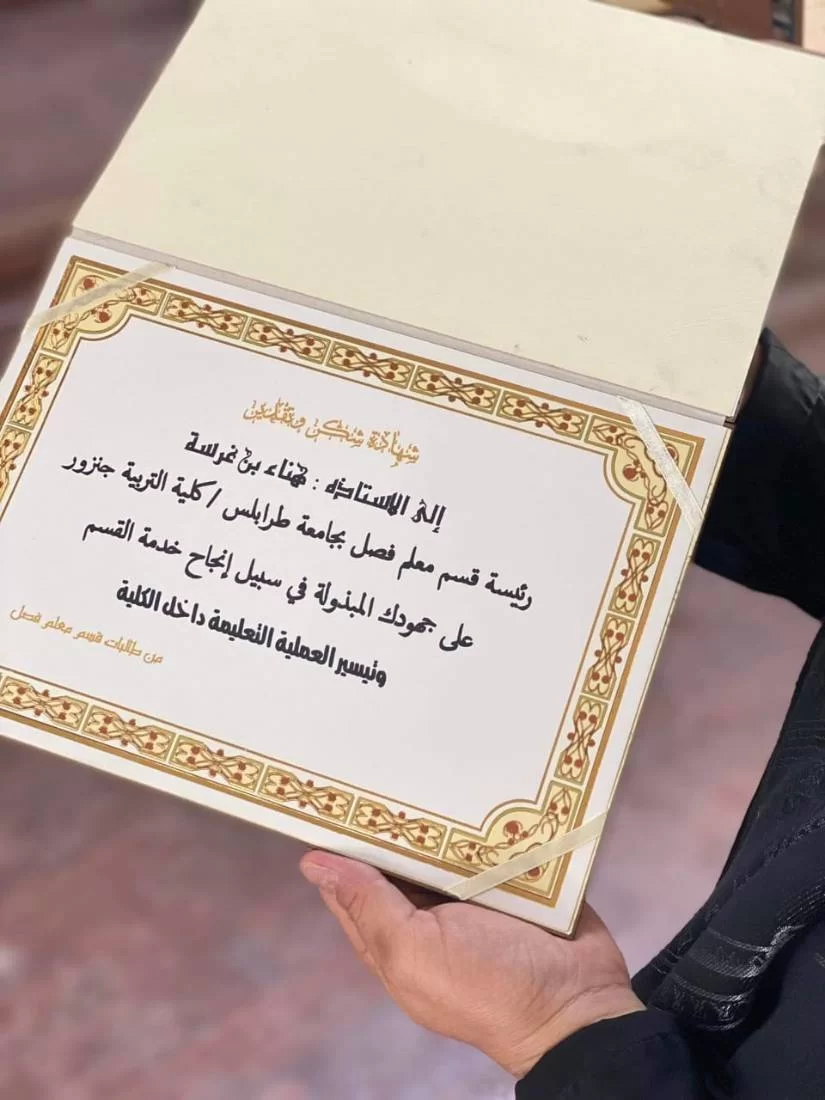 شهادة شكر وتقدير
إلى الاستاذه : هناء بن غرسة
رئيسة قسم معلم فصل بجامعة طرابلس / كلية التربية جنزور
على جهودك المبذولة في سبيل إنجاح خدمة القسم
وتيسير العملية التعليمة داخل الكلية
من طالبات قسم معلم فصل